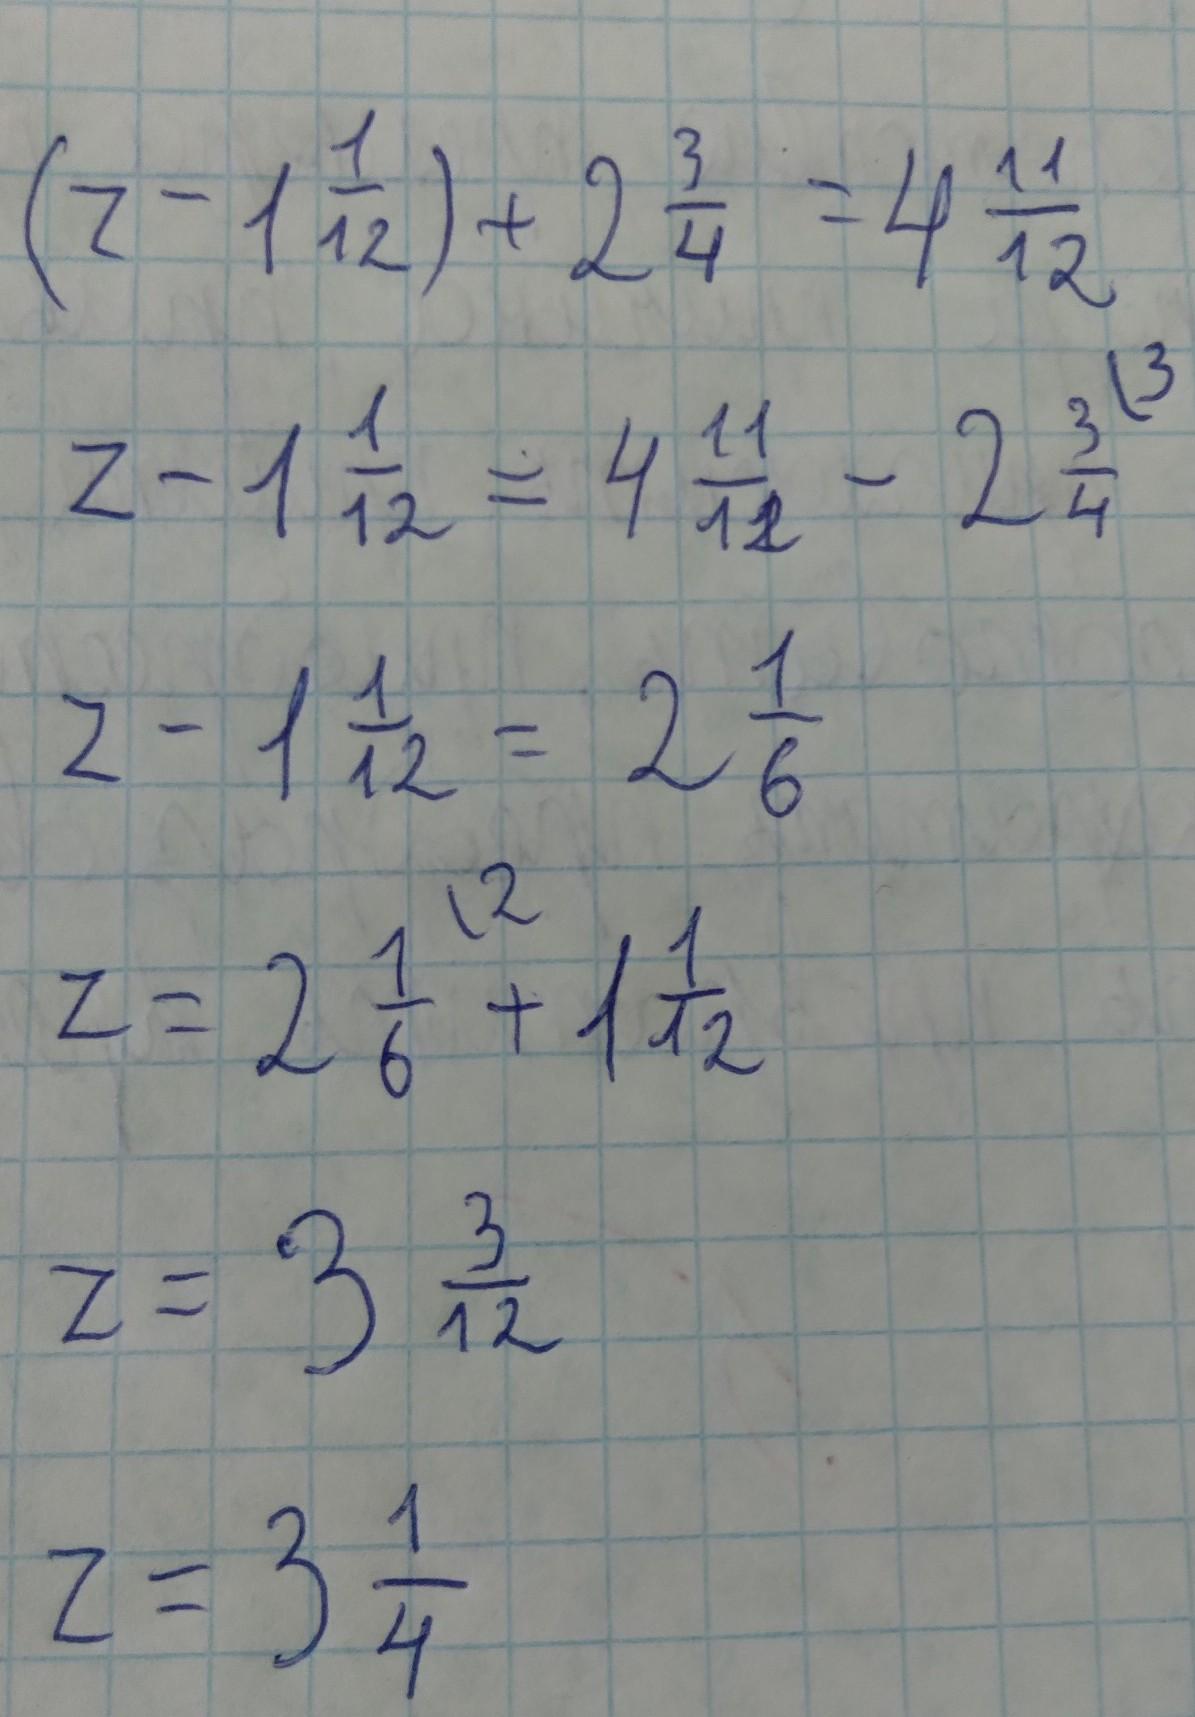 (z - 1 1/12) + 2 3/4 = 4 11/12
z - 1 1/12 = 4 11/12 - 2 3/4 \3
z - 1 1/12 = 2 1/6
z = 2 1/6 \2 + 1 1/12
z = 3 3/12
z = 3 1/4